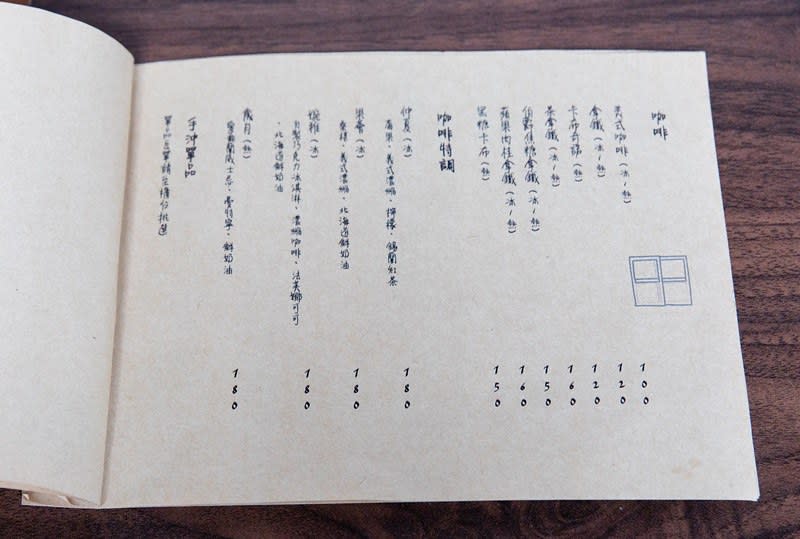 咖啡
美式咖啡(冰/熱) 100
拿鐵(冰/熱) 120
卡布奇諾(熱) 120
茶拿鐵(冰/熱) 160
伯爵焦糖拿鐵(冰/熱) 150
蘋果肉桂拿鐵(冰/熱) 160
黑糖卡布(熱) 150
咖啡特調
仲夏(冰) 180
義式濃縮、檸檬、錫蘭紅茶
(冰) 180
義式濃縮、北海道鮮奶油
(冰) 180
自製巧克力冰淇淋、濃縮咖啡、法芙娜可可
、北海道鮮奶油
歲月(熱) 180
愛爾蘭威士忌、曼特寧、鮮奶油
手沖單品
單品豆單請至挑選